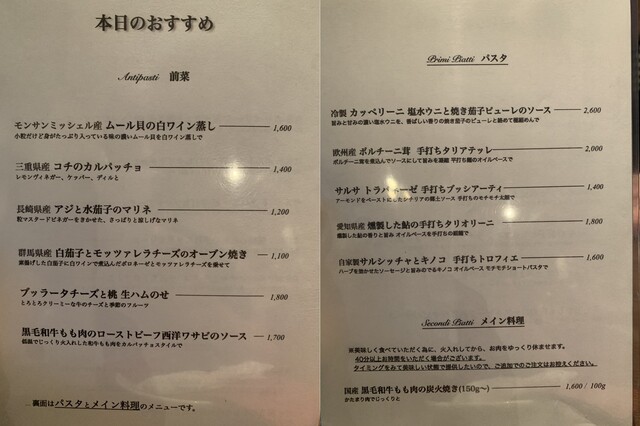 本日のおすすめ
Antipasti 前菜
モンサンミッシェル産 ムール貝の白ワイン蒸し 1,600
小粒だけど旨がたっぷり入っている味の濃いムール貝を白ワイン蒸しで
三重県産 コチのカルパッチョ 1,400
レモンヴィネガー、ケッパー、ディルと
長崎県産 アジと水茄子のマリネ 1,200
粒マスタードビネガーをきかせた、さっぱりと涼しげなマリネ
群馬県産 白茄子とモッツァレラチーズのオーブン焼き 1,100
素揚げした白茄子に白ワインで煮込んだボロネーゼとモッツァレラチーズを乗せて
ブッラータチーズと桃 生ハムのせ 1,800
とろとろクリーミーな牛のチーズと季節のフルーツ
黒毛和牛もも肉のローストビーフ西洋ワサビのソース 1,700
低温でじっくり火入れした和牛もも肉をカルパッチョスタイルで
裏面はパスタとメイン料理のメニューです。
Primi Piatti パスタ
冷製 カッペリーニ 塩水ウニと焼き茄子ピューレのソース 2,600
旨みと甘みの濃い塩水ウニを、香ばしい香りの焼き茄子のピューレと絡めて極細めんで
欧州産 ポルチーニ茸 手打ちタリアテッレ 2,000
ポルチーニ茸を煮込んでソースにして旨みを凝縮 手打ち麺のオイルベースで
サルサ トラパネーゼ 手打ちブッシアーティ 1,400
アーモンドをベースにしたシチリアの郷土ソース 手打ちのモチモチ太麺で
愛知県産 燻製した鮎の手打ちタリオリーニ 1,800
燻製した鮎の香りと旨み オイルベースを手打ちの細麺で
自家製サルシッチャとキノコ 手打ちトロフィエ 1,600
ハーブを効かせたソーセージと旨みのでるキノコ オイルベース モチモチショートパスタで
Secondi Piatti メイン料理
※美味しく食べていただく為に、火入れしてから、お肉をゆっくり休ませます。
40分以上お時間をいただく場合がございます。
タイミングをみて美味しい状態で提供したいので、ご追加でのご注文はお控えください。
国産 黒毛和牛もも肉の炭火焼き(150g〜) 1,600 / 100g
かたまり肉でじっくりと